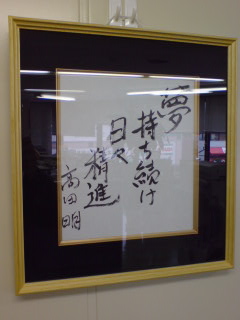 夢
持ち続け
日々
精進
高田明